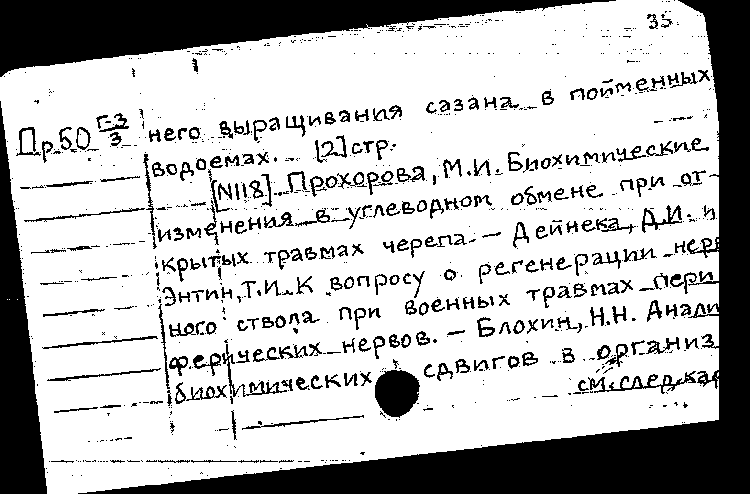 35
Пр50 Г-3/3
него выращивания сазана в пойменных
водоемах. [2] стр.
[N118] Прохорова, М.И. Биохимические
изменения в углеводном обмене при от-
крытых травмах черепа. — Дейнека, Д.И. и
Энтин, Т.И. К вопросу о регенерации нерв
ного ствола при военных травмах пери
ферических нервов. — Блохин, Н.Н. Анали
биохимических сдвигов в организ
см. след. кар